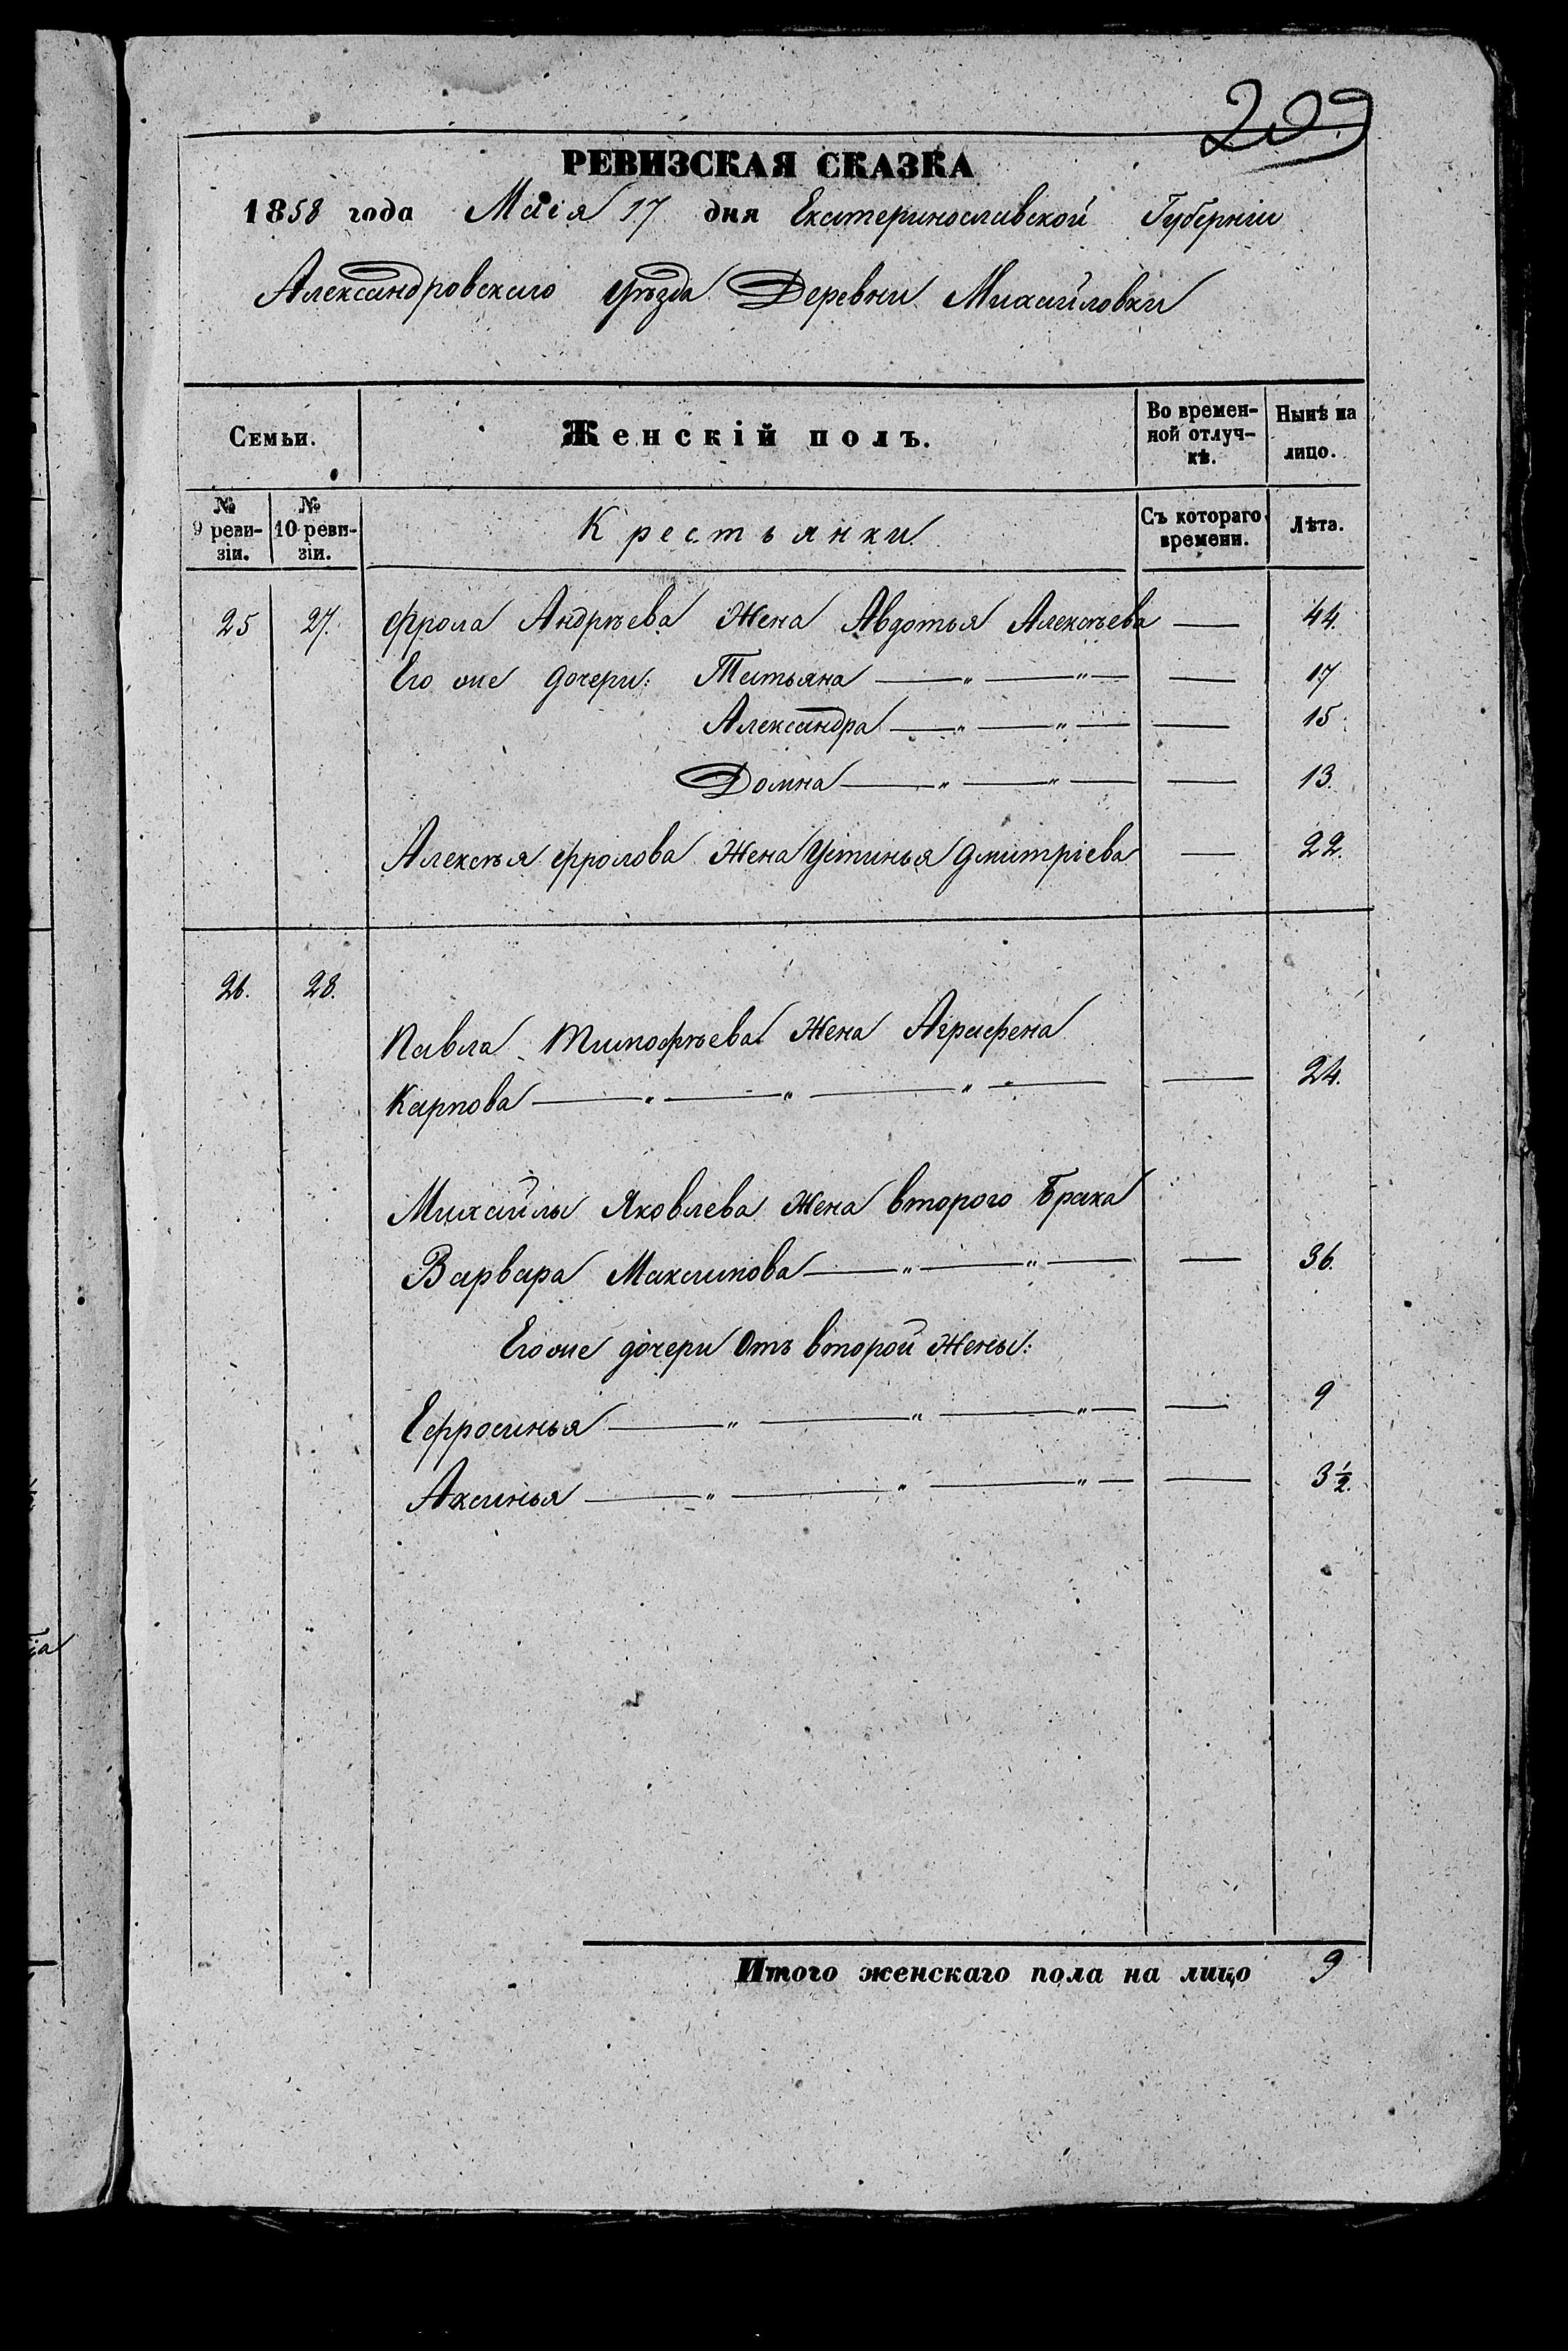 209
РЕВИЗСКАЯ СКАЗКА
1858 года Маія 17 дня Екатеринославской Губерніи
Александровскаго уѣзда Деревни Михайловки
Семьи.
Женскій полъ.
Во времен-
ной отлуч-
кѣ.
Нынѣ на
лицо.
№
9 реви-
зіи.
№
10 реви-
зіи.
Крестьянки
Съ котораго
времени.
Лѣта.
25 27. Фрола Андрѣева Жена Авдотья Алексѣева — 44.
Его же дочери: Татьяна — „ — „ — — 17
Александра — „ — „ — — 15
Домна — „ — „ — — 13.
Алексѣя Фролова Жена Устинья Дмитріева — 22.
26. 28.
Павла Тимофѣева Жена Аграфена
Карпова — „ — „ — „ — — 24.
Михайлы Яковлева Жена второго брака
Варвара Максимова — „ — „ — — 36.
Его же дочери отъ второй жены:
Ефросинья — „ — „ — „ — — 9
Аксинья — „ — „ — „ — — 3½.
Итого женскаго пола на лицо 9